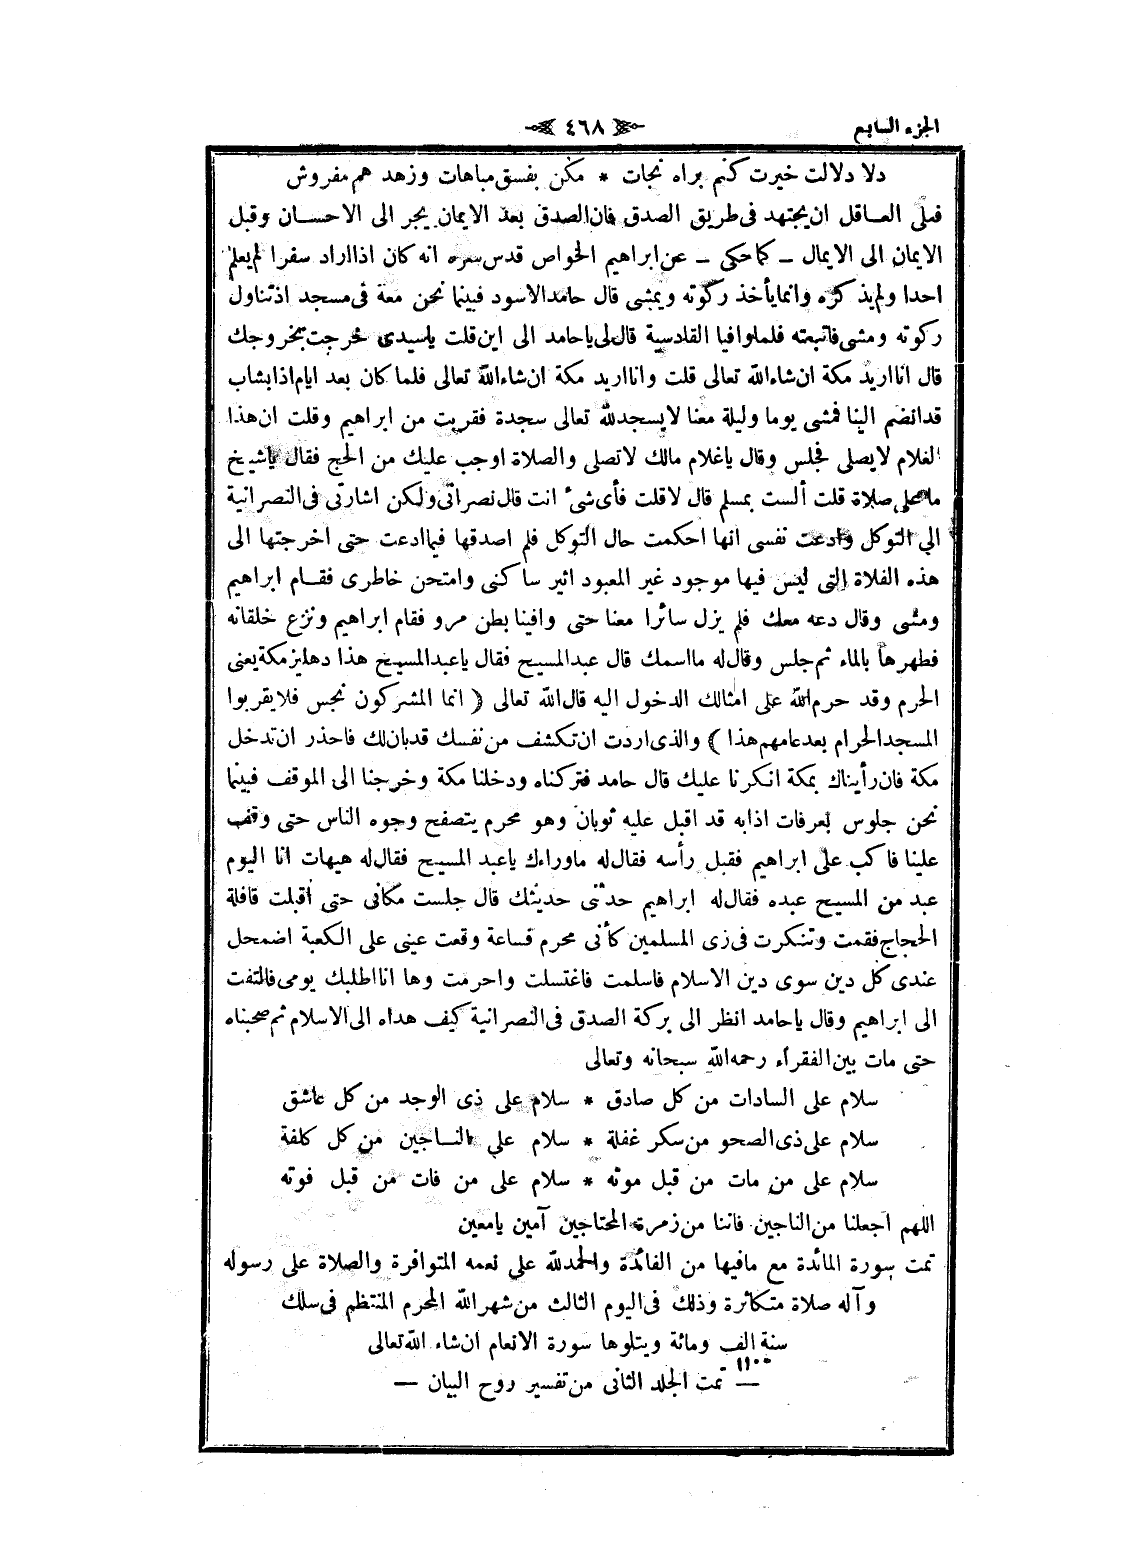 الجزء السابع
٤٦٨
دلا دلالت خيرت كنم براه نجات * مكن بفسق مباهات وزهد هم مفروش
فعلى العاقل ان يجتهد فى طريق الصدق فان الصدق بعد الايمان يجر الى الاحسان وقبل
الايمان الى الايمان ـ كما حكى ـ عن ابراهيم الخواص قدس سره انه كان اذا اراد سفرا لم يعلم
احدا ولم يذكره وانما يأخذ ركوته ويمشى قال حامد الاسود فبينما نحن معه فى مسجد اذ تناول
ركوته ومشى فاتبعته فلما وافينا القادسية قال لى يا حامد الى اين قلت ياسيدى خرجت بخروجك
قال انا اريد مكة ان شاء الله تعالى قلت وانا اريد مكة ان شاء الله تعالى فلما كان بعد ايام اذا بشاب
قد انضم الينا فمشى يوما وليلة معنا لا يسجد لله تعالى سجدة فقربت من ابراهيم وقلت ان هذا
الغلام لا يصلى فجلس وقال ياغلام مالك لا تصلى والصلاة اوجب عليك من الحج فقال ياشيخ
ما على صلاة قلت ألست بمسلم قال لا قلت فأى شىء انت قال نصرانى ولكن اشارتى فى النصرانية
الى التوكل وادعت نفسى انها احكمت حال التوكل فلم اصدقها فيما ادعت حتى اخرجتها الى
هذه الفلاة التى ليس فيها موجود غير المعبود اثير ساكنى وامتحن خاطرى فقام ابراهيم
ومشى وقال دعه معك فلم يزل سائرا معنا حتى وافينا بطن مرو فقام ابراهيم ونزع خلقانه
فطهرها بالماء ثم جلس وقال له ما اسمك قال عبد المسيح فقال ياعبد المسيح هذا دهليز مكة يعنى
الحرم وقد حرم الله على امثالك الدخول اليه قال الله تعالى ( انما المشركون نجس فلا يقربوا
المسجد الحرام بعد عامهم هذا ) والذى اردت ان تكشف من نفسك قد بان لك فاحذر ان تدخل
مكة فان رأيناك بمكة انكرنا عليك قال حامد فتركناه ودخلنا مكة وخرجنا الى الموقف فبينما
نحن جلوس بعرفات اذا به قد اقبل عليه ثوبان وهو محرم يتصفح وجوه الناس حتى وقف
علينا فاكب على ابراهيم فقبل رأسه فقال له ماوراءك ياعبد المسيح فقال له هيهات انا اليوم
عبد من المسيح عبده فقال له ابراهيم حدثنى حديثك قال جلست مكانى حتى أقبلت قافلة
الحجاج فقمت وتنكرت فى زى المسلمين كأنى محرم فساعة وقعت عينى على الكعبة اضمحل
عندى كل دين سوى دين الاسلام فاسلمت فاغتسلت واحرمت وها انا اطلبك يومى فالتفت
الى ابراهيم وقال ياحامد انظر الى بركة الصدق فى النصرانية كيف هداه الى الاسلام ثم صحبناه
حتى مات بين الفقراء رحمه الله سبحانه وتعالى
سلام على السادات من كل صادق * سلام على ذى الوجد من كل عاشق
سلام على ذى الصحو من سكر غفلة * سلام على الناجين من كل كلفة
سلام على من مات من قبل موته * سلام على من فات من قبل فوته
اللهم اجعلنا من الناجين فاننا من زمرة المحتاجين آمين يامعين
تمت سورة المائدة مع مافيها من الفائدة والحمد لله على نعمه المتوافرة والصلاة على رسوله
وآله صلاة متكاثرة وذلك فى اليوم الثالث من شهر الله المحرم المنتظم فى سلك
سنة الف ومائة ويتلوها سورة الانعام ان شاء الله تعالى
١١٠٠
— تمت الجلد الثانى من تفسير روح البيان —